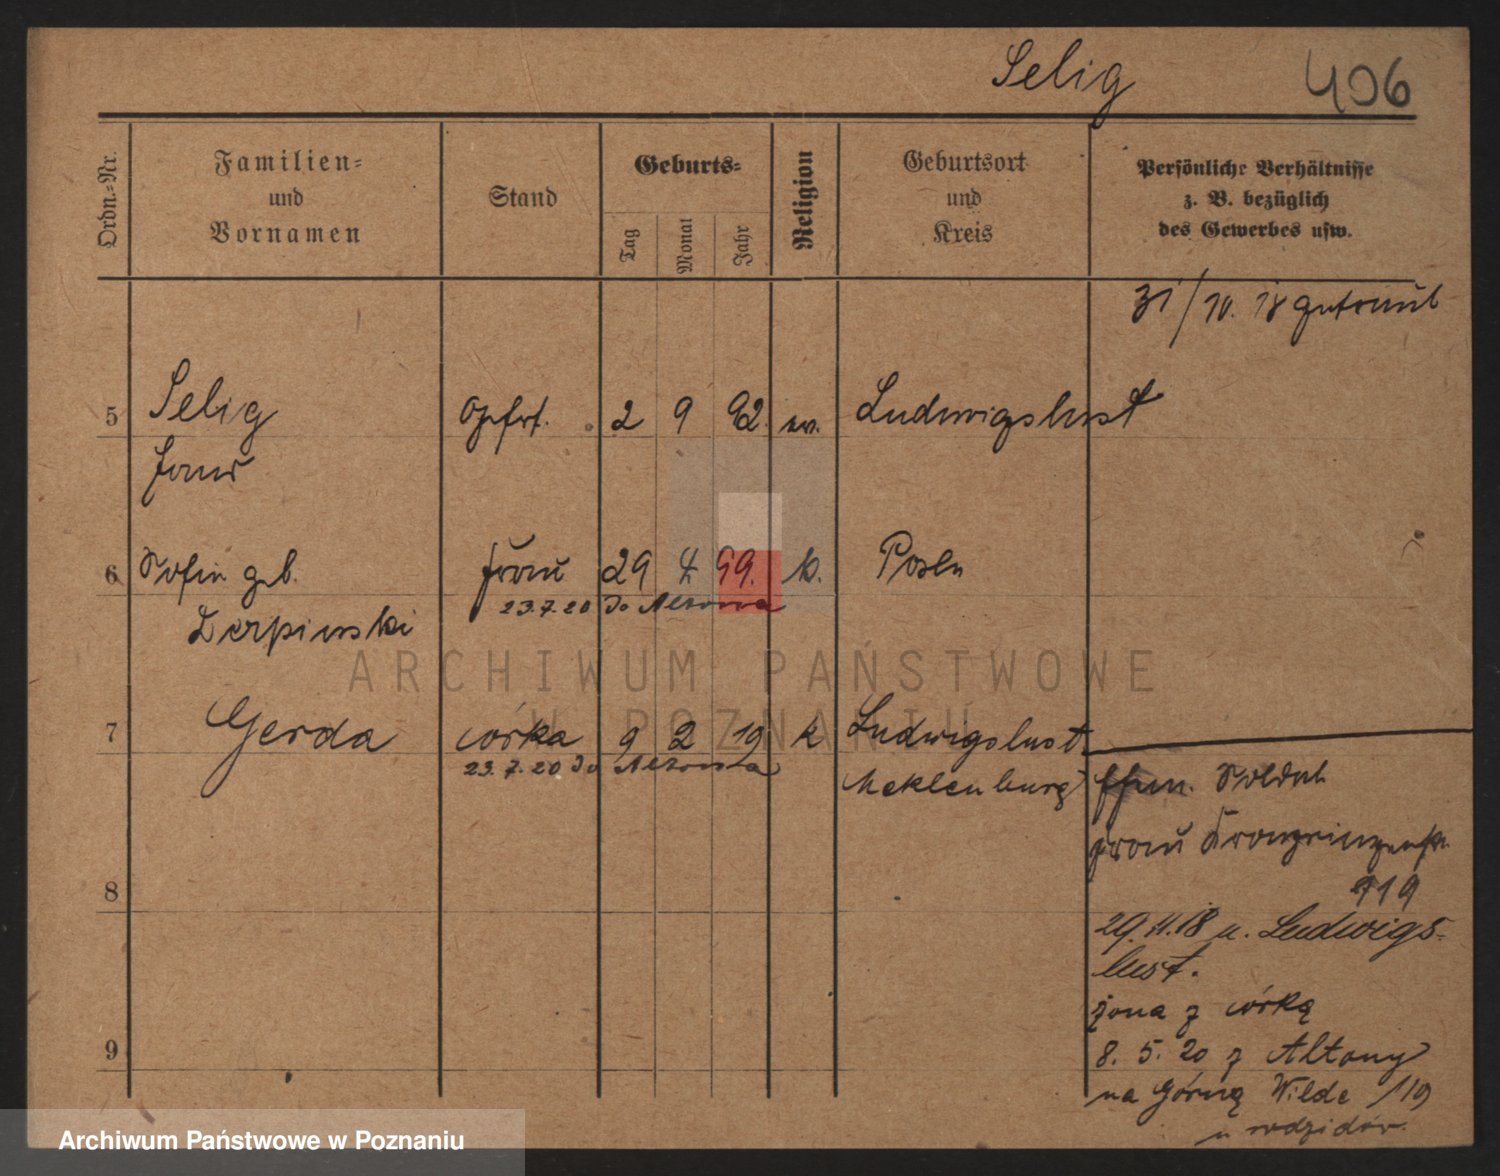 Selig 406
Ordn.-Nr.
Familien-
und
Vornamen
Stand
Geburts-
Tag
Monat
Jahr
Religion
Geburtsort
und
Kreis
Persönliche Verhältnisse
z. B. bezüglich
des Gewerbes usw.
31/10. 18 getraut
5 Selig 2 9 92 ev. Ludwigslust
6 Sofie geb. Frau 29 4 99. k. Posen
23.7.20 do Altona
Zerpinski
ARCHIWUM PAŃSTWOWE
W POZNANIU
7 Gerda córka 9 2 19 k Ludwigslust
23.7.20 do Altona
Meklenburg
Soldat
Frau Kronprinzenstr.
119
8
29.11.18 n. Ludwigs-
lust.
żona z córką
9
8. 5. 20 z Altony
na Górną Wilde 119
u rodziców.
Archiwum Państwowe w Poznaniu